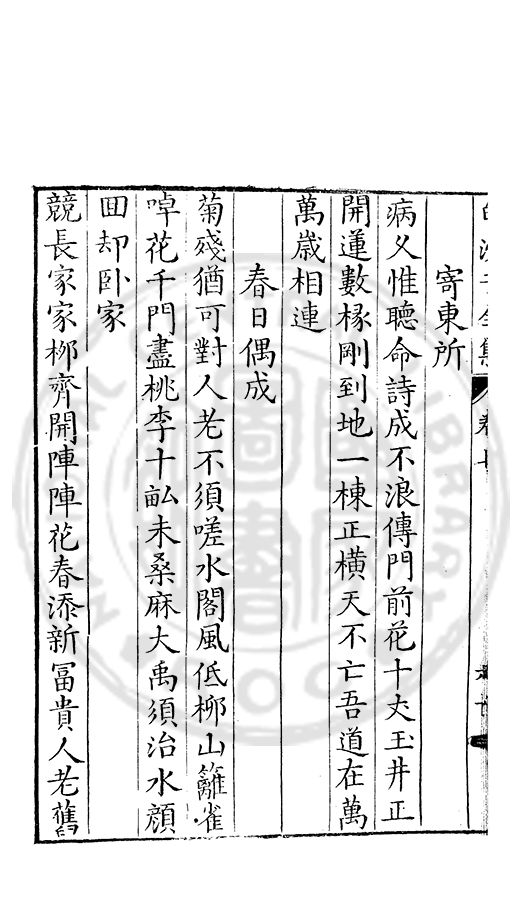 寄東所
病久惟聽命詩成不浪傳門前花十丈玉井正
開蓮數椽剛到地一棟正橫天不亡吾道在萬
萬歲相連
春日偶成
菊殘猶可對人老不須嗟水閣風低桺山籬雀
啅花千門盡桃李十畝未桑麻大禹須治水顔
回却卧家
競長家家桺齊開陣陣花春添新冨貴人老舊